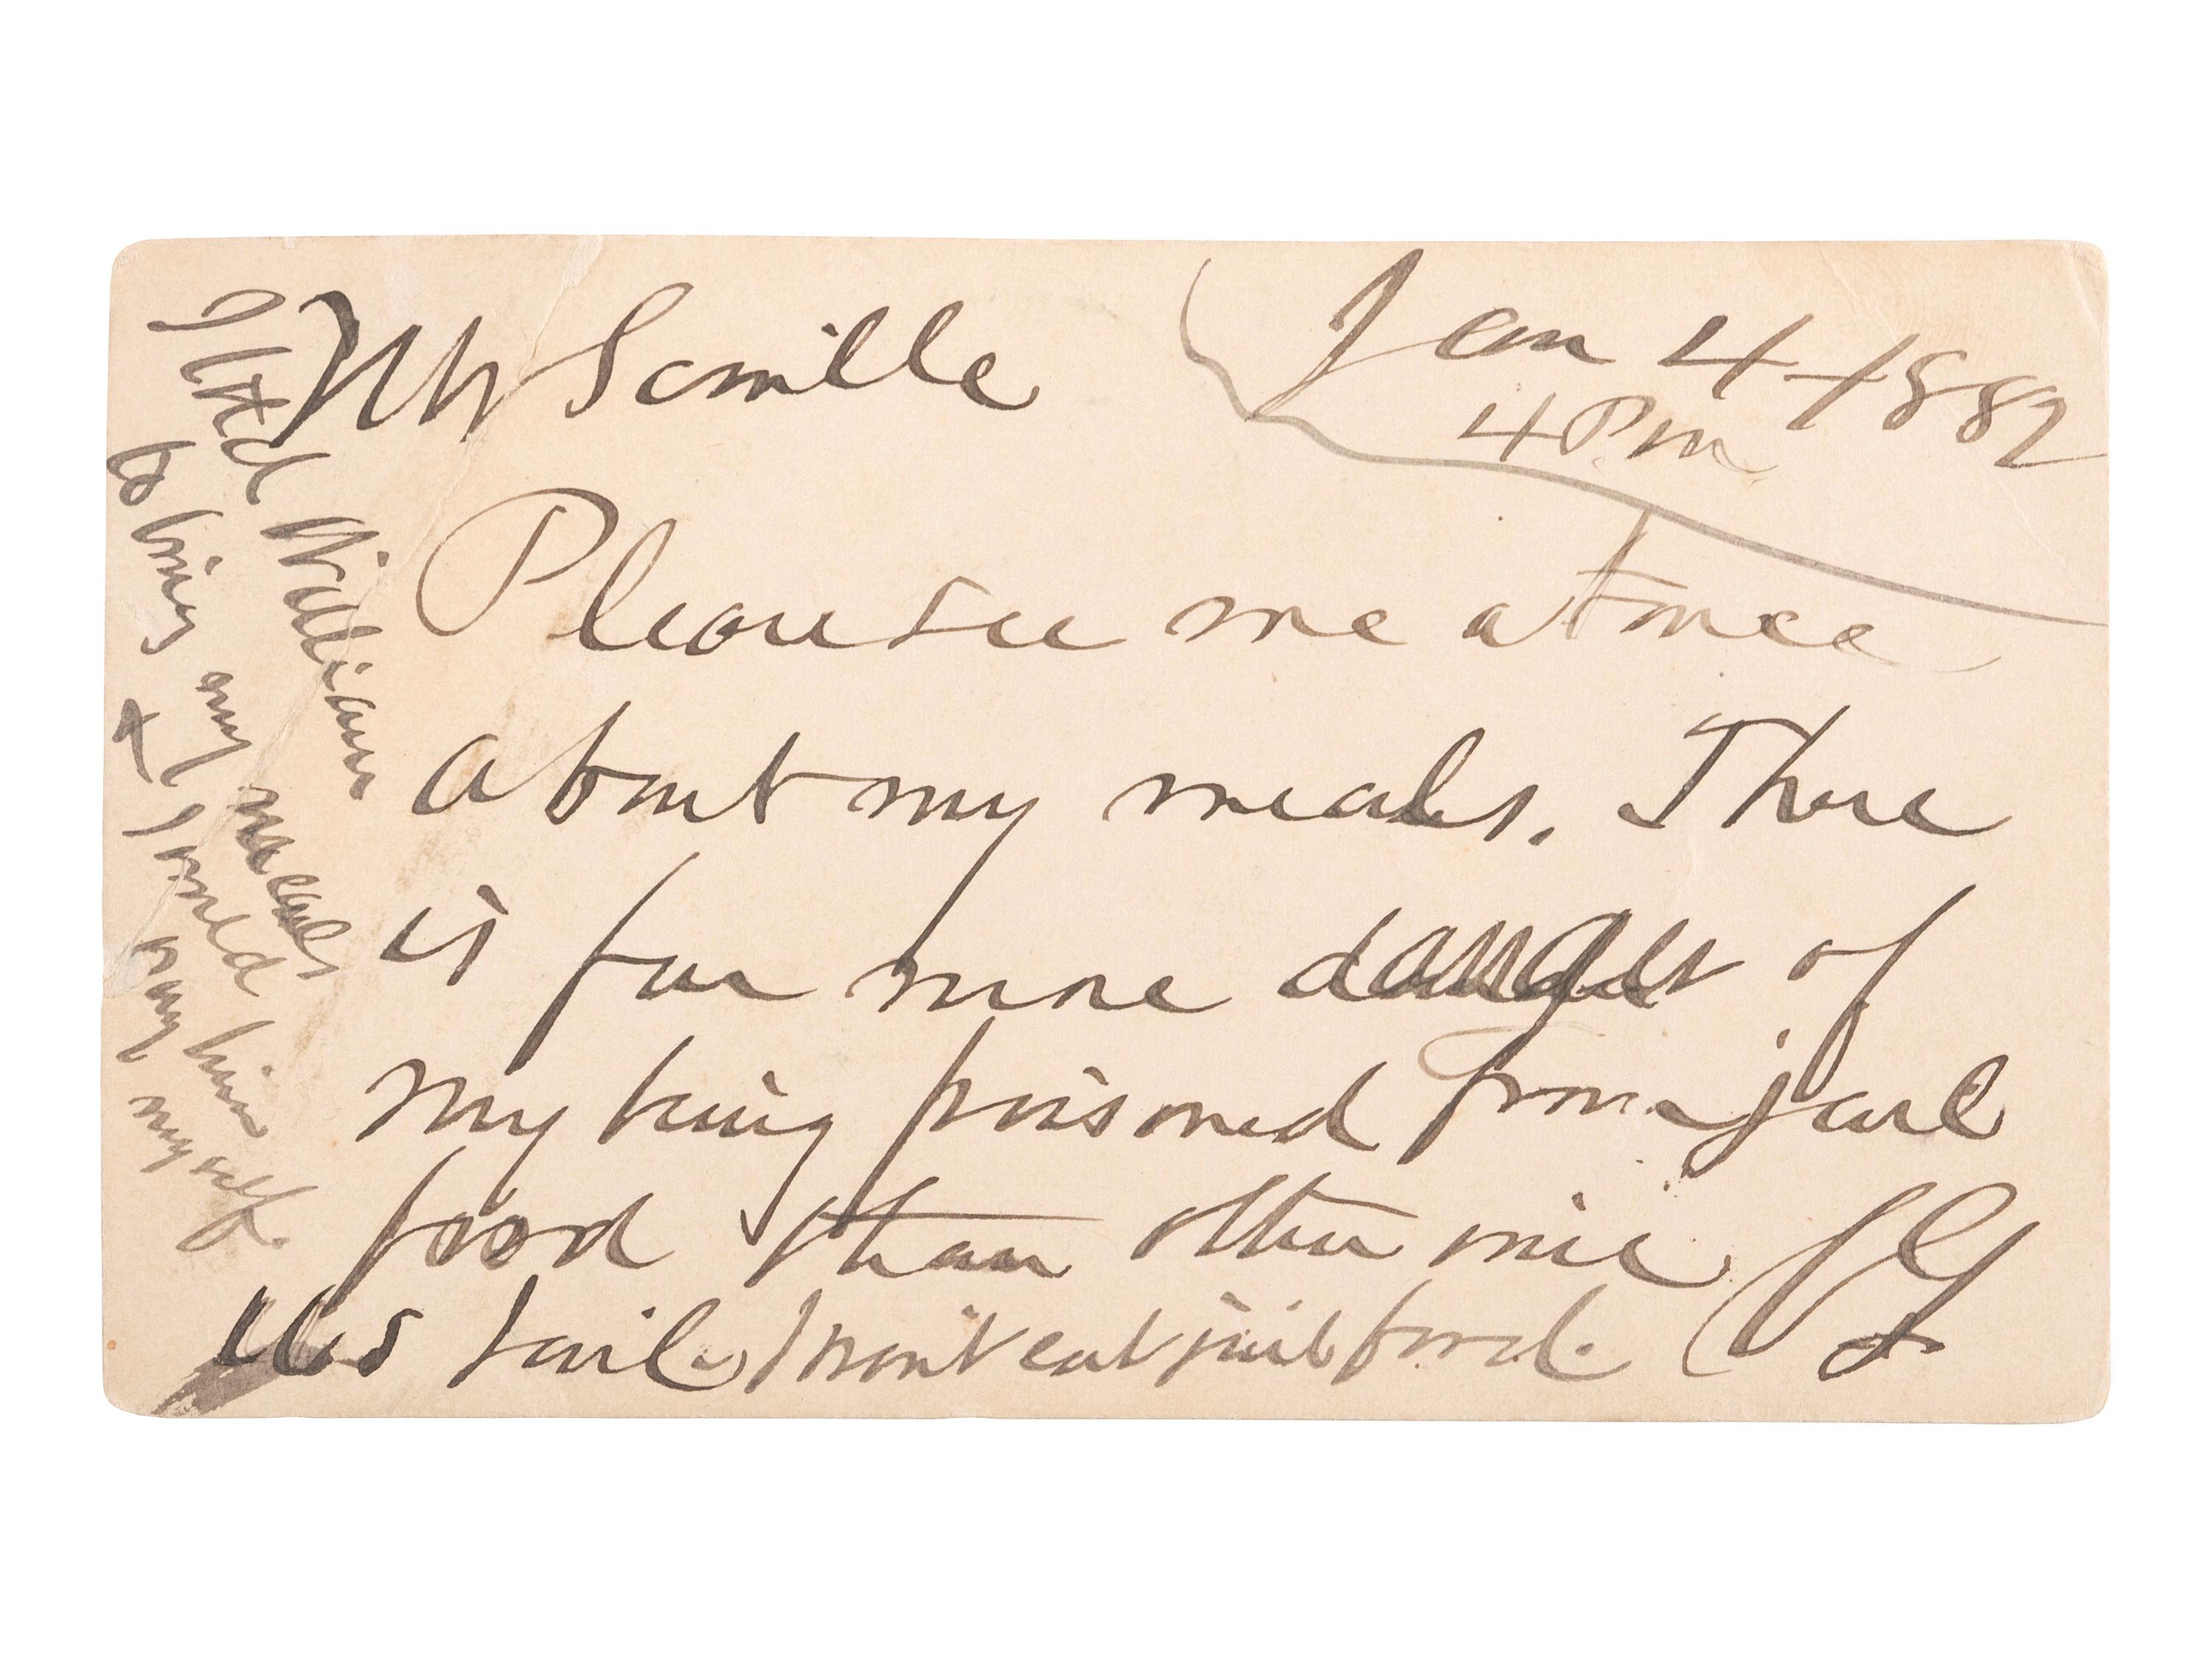 Mr Scoville
Jan 4 - 1882
4 P. m
Please see me at once
about my meals. There
is far more danger of
my being poisoned from jail
food than otherwise. CG
Don't fail. I won't eat jail food.
I told William
to bring my meals
& I would
pay him
myself.